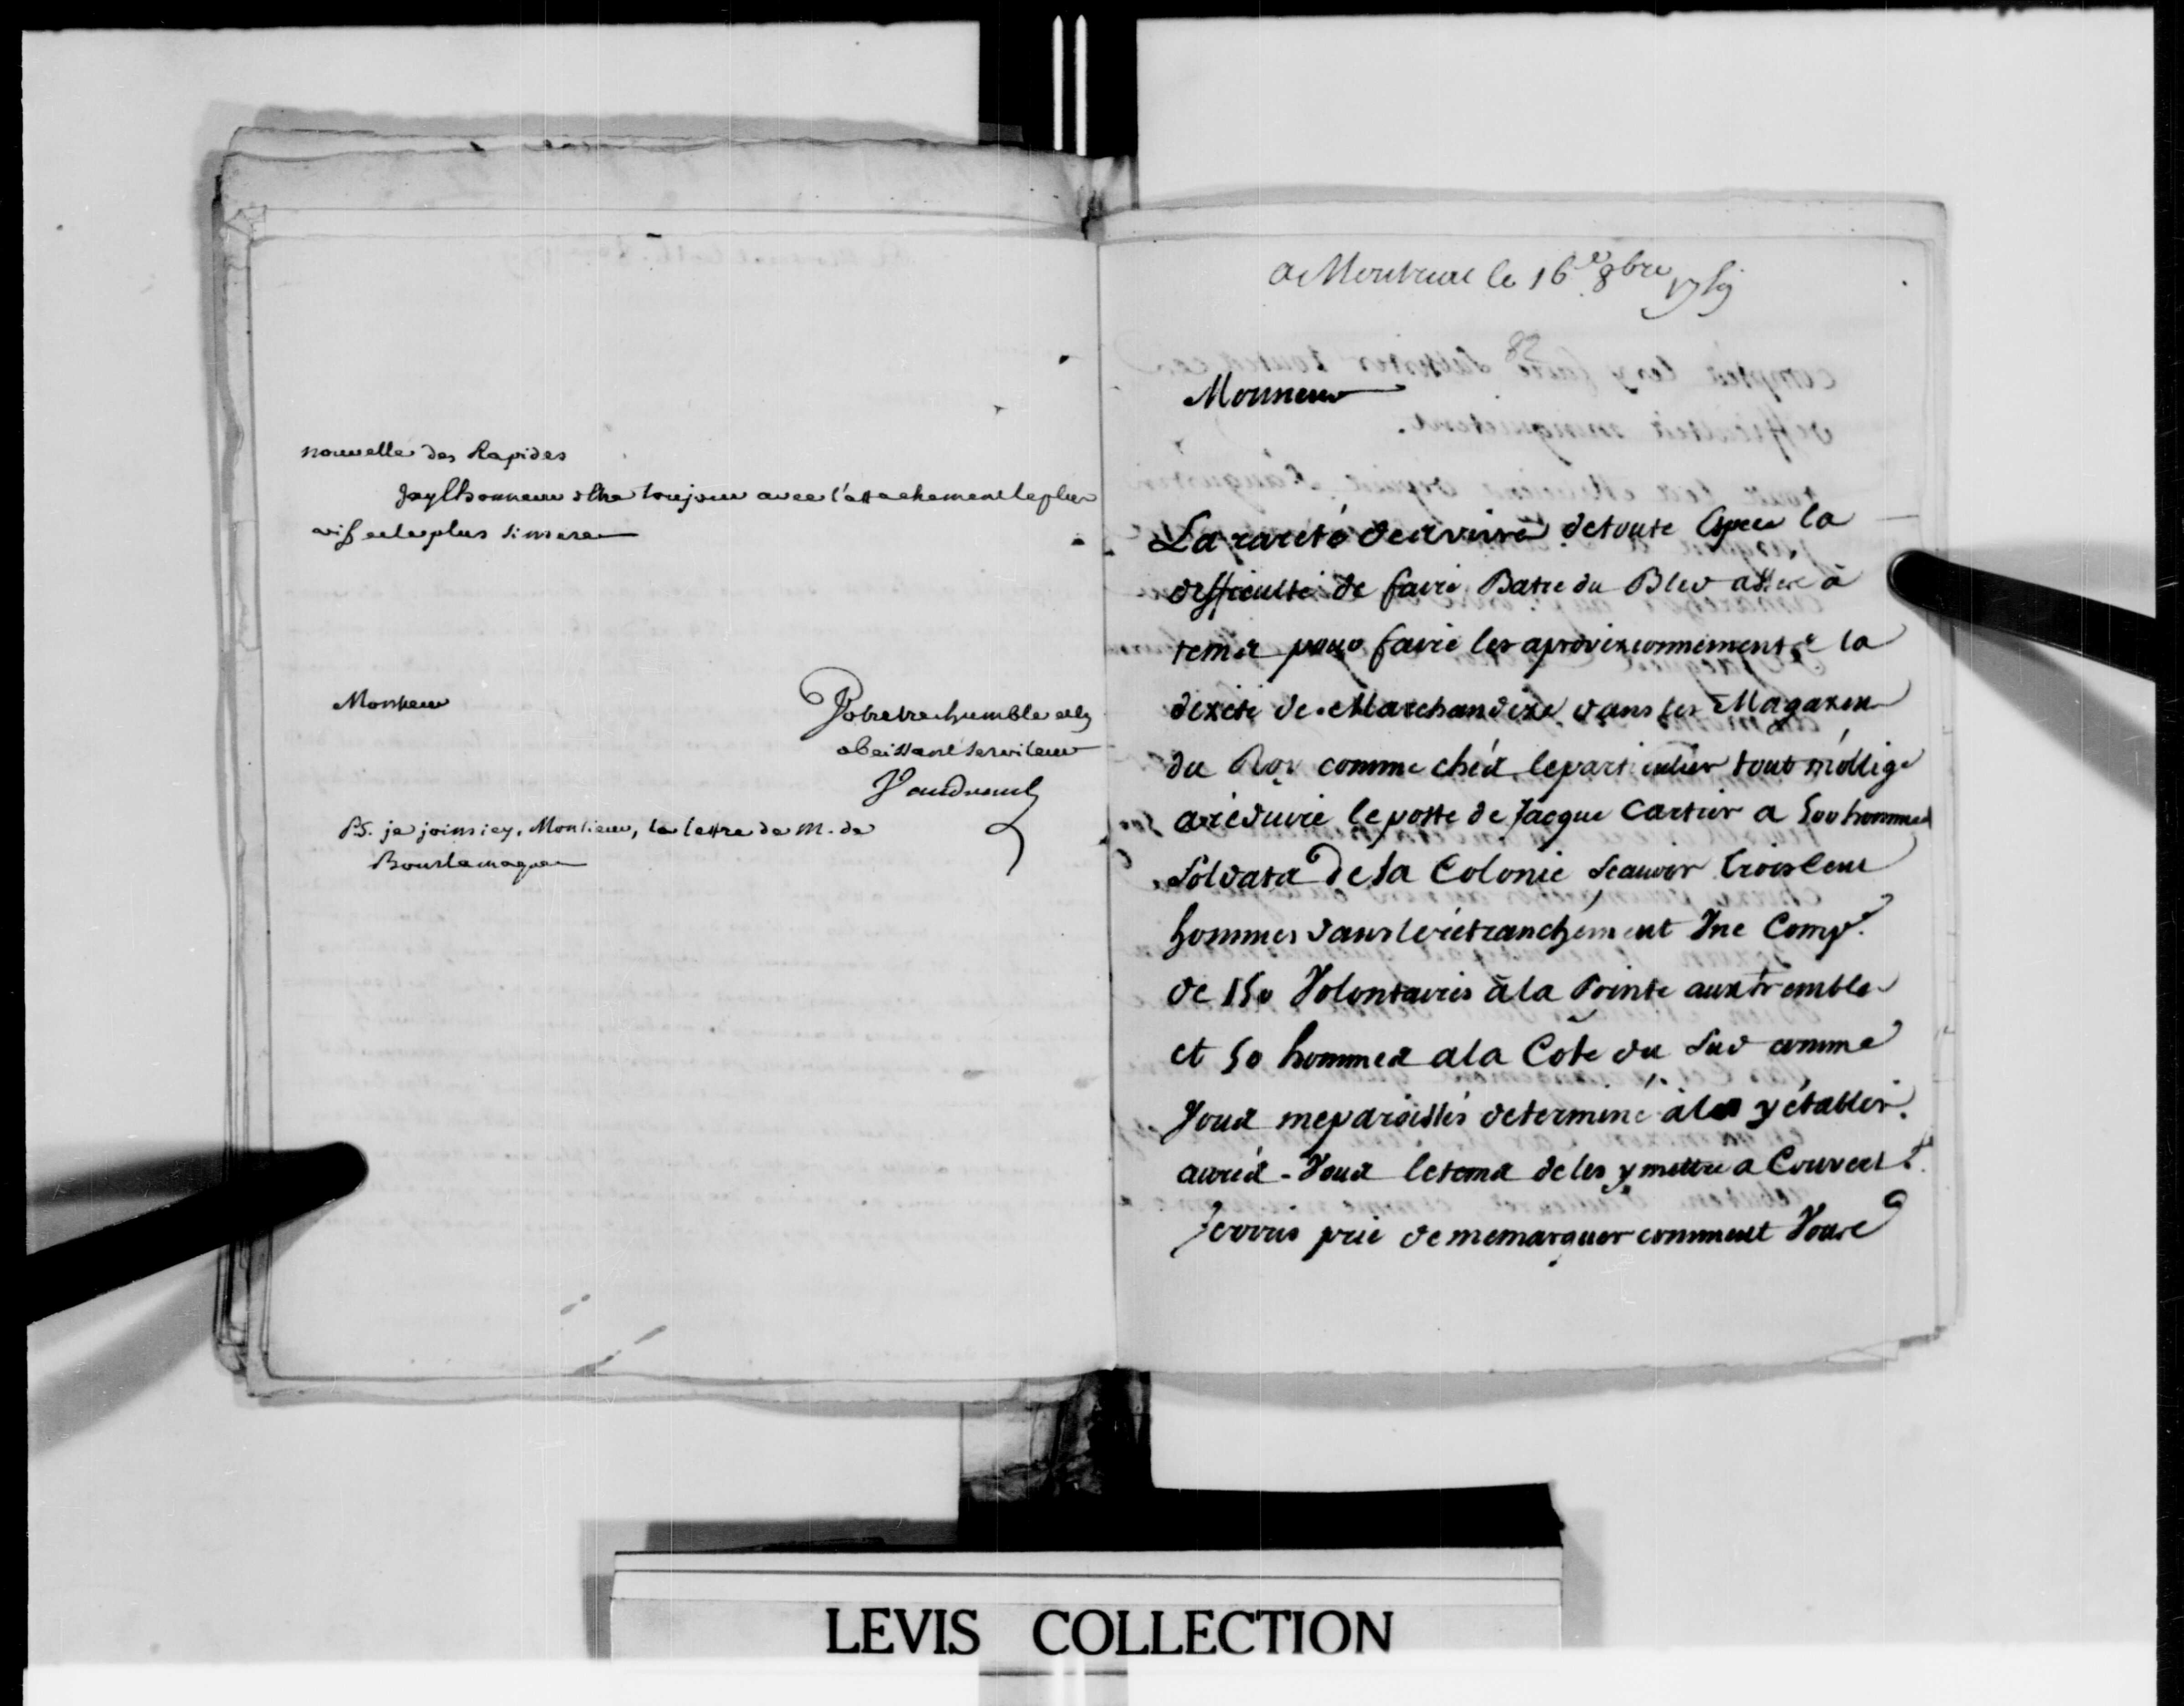 nouvelle des Rapides
Jay lhonneur d'etre toujours avec l'attachement le plus
vif et le plus sincere
Monsieur
Votre tres humble et
obeissant serviteur
Vaudreuil
P.S. je joins icy, Monsieur, la lettre de M. de
Bourlamaque
a Montreal le 16e 8bre 1759
82
Monsieur
La rareté des vivres de toute Espece la
difficulté de faire Batre du Bled assés à
tems pour faire les aprovixionnements la
dixete de Marchandixe dans les Magaxins
du Roy comme chés le particulier tout m'oblige
a réduire le poste de Jacque Cartier a 500 hommes
Soldats de la Colonie Scauoir Trois Cent
hommes dans le rétranchément Vne Compe.
de 150 Volontaires à la Pointe aux trembles
et 50 hommes a la Côte du Sud comme
Vous me paroissés determiné à les y établir.
aurés-Vous le tems de les y mettre a Couvert?
Je vous prie de me marquer comment Vous